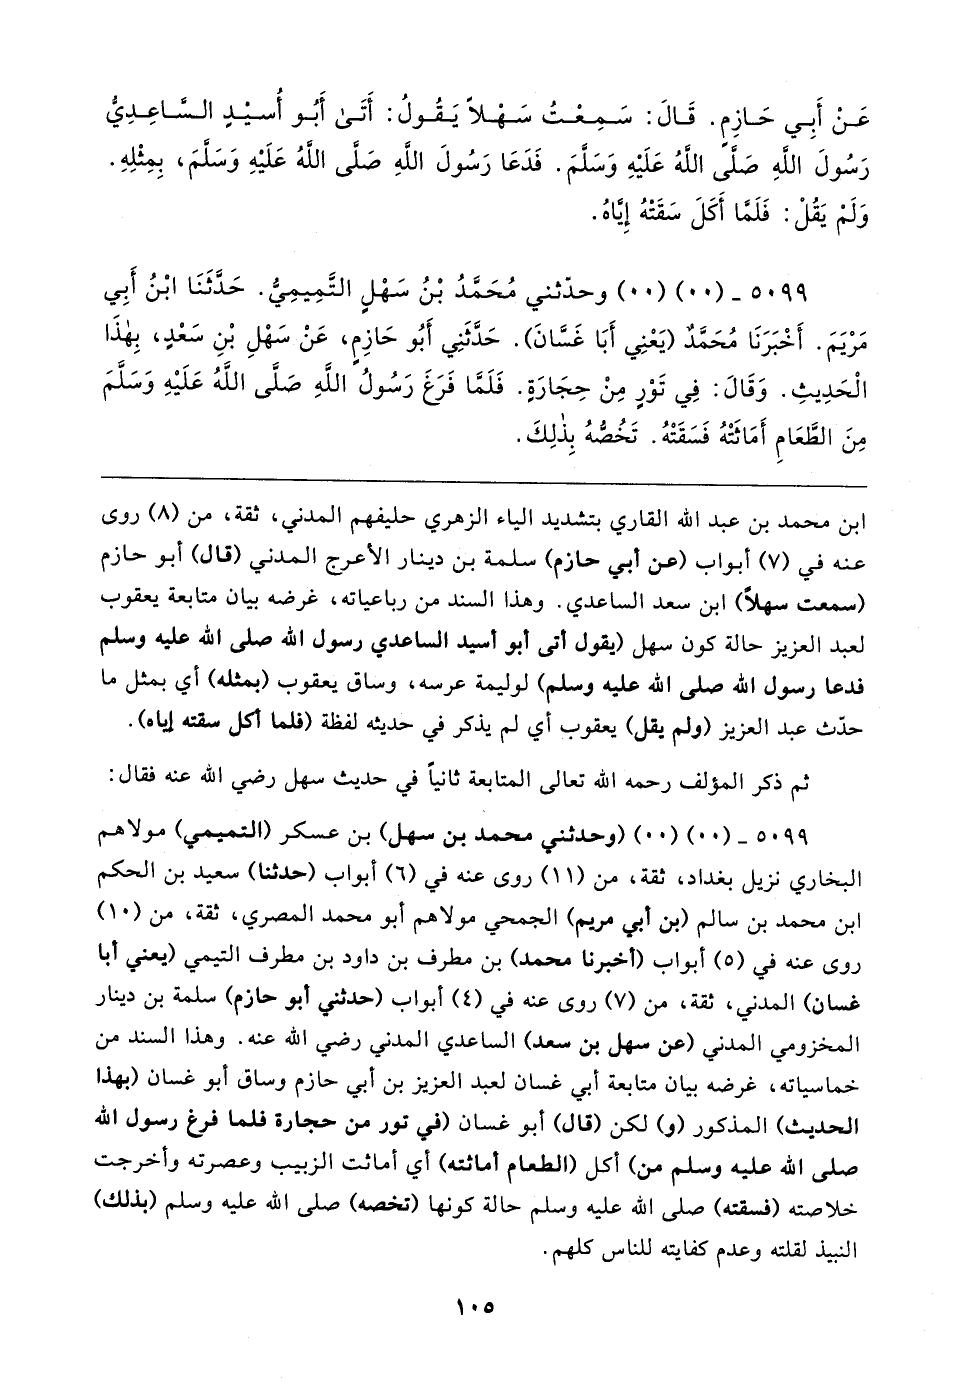 عَنْ أَبِي حَازِمٍ. قَالَ: سَمِعْتُ سَهْلاً يَقُولُ: أَتَىٰ أَبُو أُسَيْدٍ السَّاعِدِيُّ
رَسُولَ اللَّهِ صَلَّى اللَّهُ عَلَيْهِ وَسَلَّمَ. فَدَعَا رَسُولَ اللَّهِ صَلَّى اللَّهُ عَلَيْهِ وَسَلَّمَ، بِمِثْلِهِ.
وَلَمْ يَقُلْ: فَلَمَّا أَكَلَ سَقَتْهُ إِيَّاهُ.
٥٠٩٩ - (٠٠) (٠٠) وحدّثني مُحَمَّدُ بْنُ سَهْلٍ التَّمِيمِيُّ. حَدَّثَنَا ابْنُ أَبِي
مَرْيَمَ. أَخْبَرَنَا مُحَمَّدٌ (يَعْنِي أَبَا غَسَّانَ). حَدَّثَنِي أَبُو حَازِمٍ، عَنْ سَهْلِ بْنِ سَعْدٍ، بِهٰذَا
الْحَدِيثِ. وَقَالَ: فِي تَوْرٍ مِنْ حِجَارَةٍ. فَلَمَّا فَرَغَ رَسُولُ اللَّهِ صَلَّى اللَّهُ عَلَيْهِ وَسَلَّمَ
مِنَ الطَّعَامِ أَمَاثَتْهُ فَسَقَتْهُ. تَخُصُّهُ بِذٰلِكَ.
ابن محمد بن عبد الله القاري بتشديد الياء الزهري حليفهم المدني، ثقة، من (٨) روى
عنه في (٧) أبواب (عن أبي حازم) سلمة بن دينار الأعرج المدني (قال) أبو حازم
(سمعت سهلاً) ابن سعد الساعدي. وهذا السند من رباعياته، غرضه بيان متابعة يعقوب
لعبد العزيز حالة كون سهل (يقول أتى أبو أسيد الساعدي رسول الله صلى الله عليه وسلم
فدعا رسول الله صلى الله عليه وسلم) لوليمة عرسه، وساق يعقوب (بمثله) أي بمثل ما
حدّث عبد العزيز (ولم يقل) يعقوب أي لم يذكر في حديثه لفظة (فلما أكل سقته إياه).
ثم ذكر المؤلف رحمه الله تعالى المتابعة ثانياً في حديث سهل رضي الله عنه فقال:
٥٠٩٩ - (٠٠) (٠٠) (وحدثني محمد بن سهل) بن عسكر (التميمي) مولاهم
البخاري نزيل بغداد، ثقة، من (١١) روى عنه في (٦) أبواب (حدثنا) سعيد بن الحكم
ابن محمد بن سالم (بن أبي مريم) الجمحي مولاهم أبو محمد المصري، ثقة، من (١٠)
روى عنه في (٥) أبواب (أخبرنا محمد) بن مطرف بن داود بن مطرف التيمي (يعني أبا
غسان) المدني، ثقة، من (٧) روى عنه في (٤) أبواب (حدثني أبو حازم) سلمة بن دينار
المخزومي المدني (عن سهل بن سعد) الساعدي المدني رضي الله عنه. وهذا السند من
خماسياته، غرضه بيان متابعة أبي غسان لعبد العزيز بن أبي حازم وساق أبو غسان (بهذا
الحديث) المذكور (و) لكن (قال) أبو غسان (في تور من حجارة فلما فرغ رسول الله
صلى الله عليه وسلم من) أكل (الطعام أماثته) أي أماثت الزبيب وعصرته وأخرجت
خلاصته (فسقته) صلى الله عليه وسلم حالة كونها (تخصه) صلى الله عليه وسلم (بذلك)
النبيذ لقلته وعدم كفايته للناس كلهم.
١٠٥